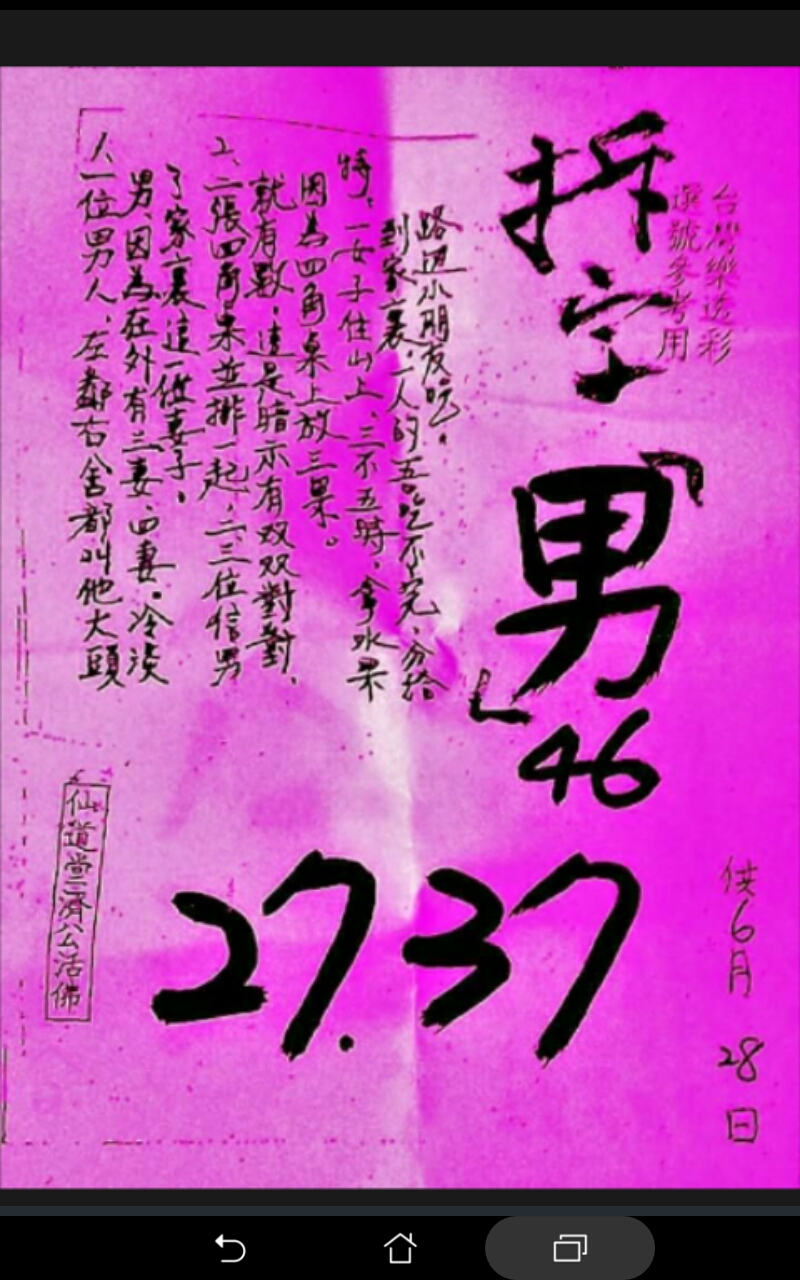 台灣樂透彩
選號參考用
拆字「男」46
1、一位男人、左鄰右舍都叫他大頭
男、因為在外有三妻、四妻。冷淡
了家裏這一位妻子。
2、二張四角桌並排一起、二三位信男
就有數、這是暗示有双双對對、
因為四角桌上放三果。
特、一女子住山上、三不五時、拿水果
到家裏、一人的五吃不完、分給
路边小朋友吃。
27.37
供6月28日
仙道堂三濟公活佛